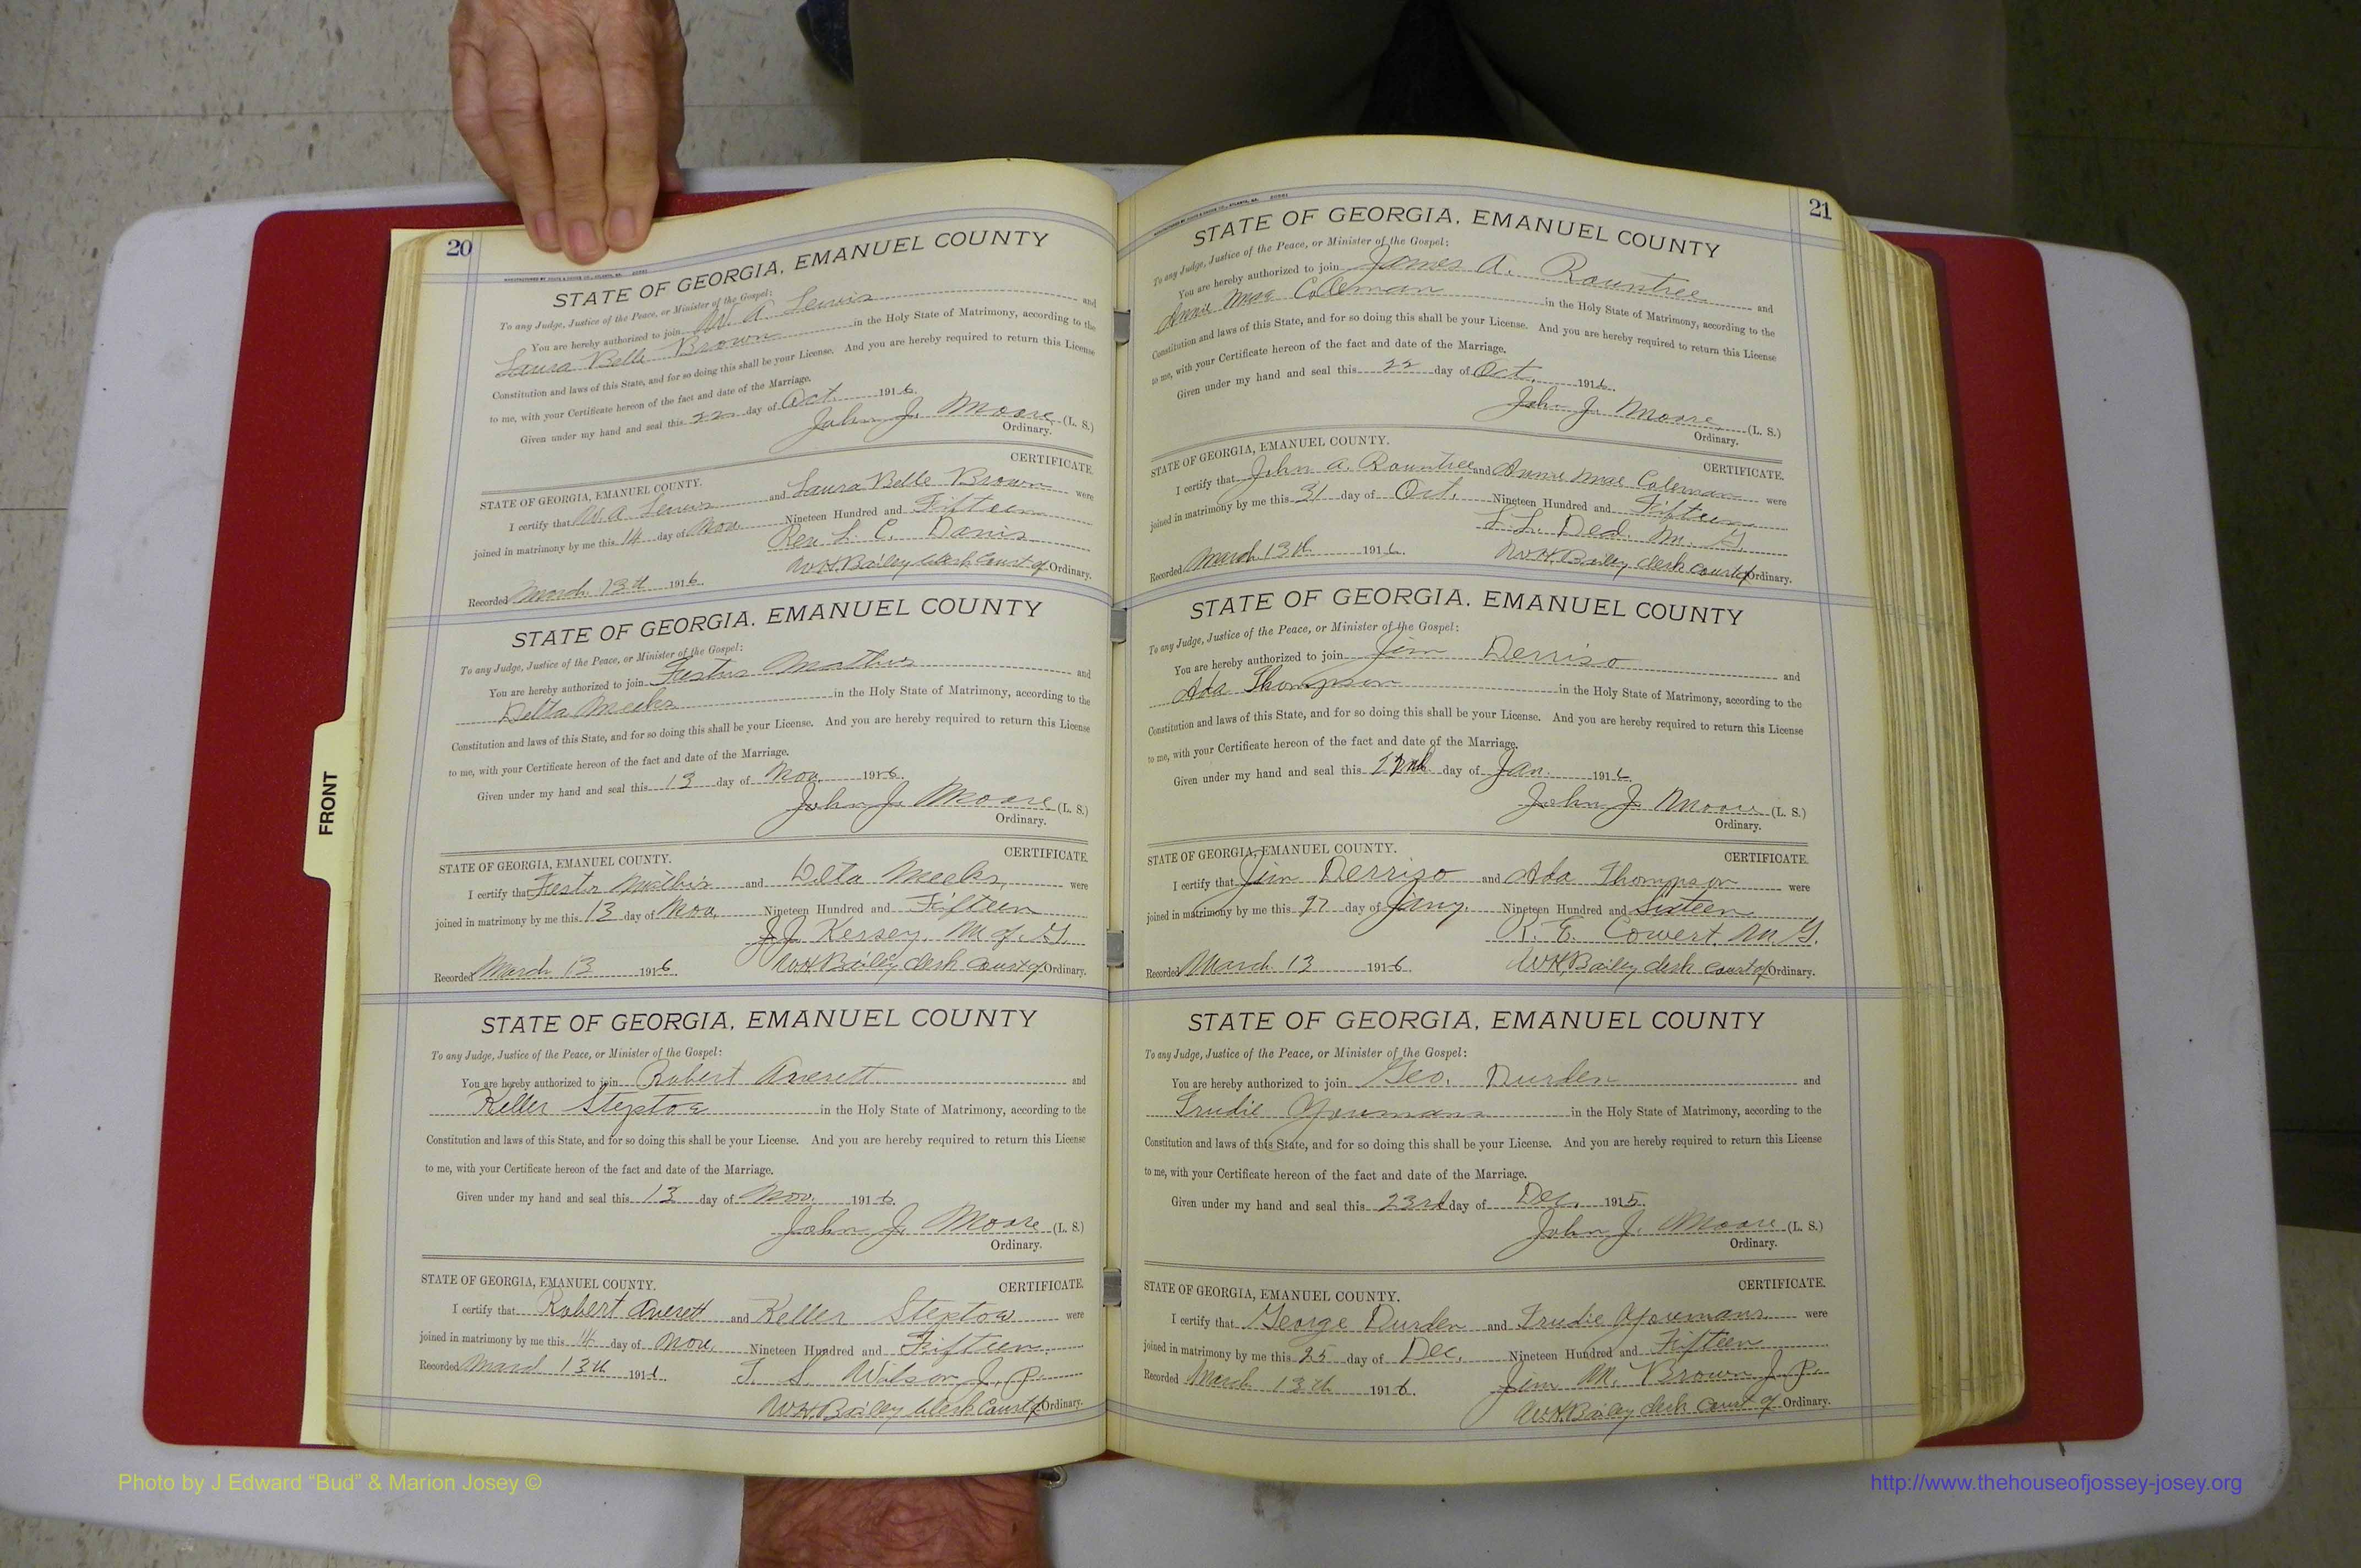 20
STATE OF GEORGIA, EMANUEL COUNTY
To any Judge, Justice of the Peace, or Minister of the Gospel:
You are hereby authorized to join W. A Lewis and
Laura Belle Brown in the Holy State of Matrimony, according to the
Constitution and laws of this State, and for so doing this shall be your License. And you are hereby required to return this License
to me, with your Certificate hereon of the fact and date of the Marriage.
Given under my hand and seal this 22 day of Oct. 1916.
John J. Moore (L. S.)
Ordinary.
CERTIFICATE.
STATE OF GEORGIA, EMANUEL COUNTY.
I certify that W. A Lewis and Laura Belle Brown were
joined in matrimony by me this 14 day of Nov Nineteen Hundred and Fifteen
Rev L. C. Davis
Recorded March 13th 1916. W.H. Bailey Clerk Court of Ordinary.
STATE OF GEORGIA, EMANUEL COUNTY
To any Judge, Justice of the Peace, or Minister of the Gospel:
You are hereby authorized to join Festus Mathis and
Delta Meeks in the Holy State of Matrimony, according to the
Constitution and laws of this State, and for so doing this shall be your License. And you are hereby required to return this License
to me, with your Certificate hereon of the fact and date of the Marriage.
Given under my hand and seal this 13 day of Nov. 1916.
John J. Moore (L. S.)
Ordinary.
CERTIFICATE.
STATE OF GEORGIA, EMANUEL COUNTY.
I certify that Mathis and Delta Meeks, were
joined in matrimony by me this 13 day of Nov, Nineteen Hundred and Fifteen
J.J. Kersey, M of G.
Recorded March 13 1916. W.H. Bailey clerk court of Ordinary.
STATE OF GEORGIA, EMANUEL COUNTY
To any Judge, Justice of the Peace, or Minister of the Gospel:
You are hereby authorized to join Robert Averett and
Keller Steptoe in the Holy State of Matrimony, according to the
Constitution and laws of this State, and for so doing this shall be your License. And you are hereby required to return this License
to me, with your Certificate hereon of the fact and date of the Marriage.
Given under my hand and seal this 13 day of Nov. 1916.
John J. Moore (L. S.)
Ordinary.
STATE OF GEORGIA, EMANUEL COUNTY. CERTIFICATE.
I certify that Robert Averett and Keller Steptoe were
joined in matrimony by me this 14 day of Nov, Nineteen Hundred and Fifteen.
Recorded March 13th 1916. T. S. Wilson J. P.
W.H. Bailey Clerk Court of Ordinary.
21
STATE OF GEORGIA, EMANUEL COUNTY
To any Judge, Justice of the Peace, or Minister of the Gospel:
You are hereby authorized to join James A. Rountree and
Annie Mae Coleman in the Holy State of Matrimony, according to the
Constitution and laws of this State, and for so doing this shall be your License. And you are hereby required to return this License
to me, with your Certificate hereon of the fact and date of the Marriage.
Given under my hand and seal this 22 day of Oct. 1916.
John J. Moore, (L. S.)
Ordinary.
STATE OF GEORGIA, EMANUEL COUNTY. CERTIFICATE.
I certify that John A. Rountree and Annie Mae Coleman were
joined in matrimony by me this 31 day of Oct. Nineteen Hundred and Fifteen
M. G.
Recorded March 13th 1916. W.H. Bailey clerk court of Ordinary.
STATE OF GEORGIA, EMANUEL COUNTY
To any Judge, Justice of the Peace, or Minister of the Gospel:
You are hereby authorized to join Jim Derriso and
Ada Thompson in the Holy State of Matrimony, according to the
Constitution and laws of this State, and for so doing this shall be your License. And you are hereby required to return this License
to me, with your Certificate hereon of the fact and date of the Marriage.
Given under my hand and seal this day of Jan. 1916
John J. Moore (L. S.)
Ordinary.
STATE OF GEORGIA, EMANUEL COUNTY. CERTIFICATE.
I certify that Jim Derriso and Ada Thompson were
joined in matrimony by me this 27 day of Jany. Nineteen Hundred and Sixteen
R. E. Cowert. M. G.
Recorded March 13 1916. W.H. Bailey clerk court of Ordinary.
STATE OF GEORGIA, EMANUEL COUNTY
To any Judge, Justice of the Peace, or Minister of the Gospel:
You are hereby authorized to join Geo. Durden and
Trudie Youmans in the Holy State of Matrimony, according to the
Constitution and laws of this State, and for so doing this shall be your License. And you are hereby required to return this License
to me, with your Certificate hereon of the fact and date of the Marriage.
Given under my hand and seal this 23rd day of Dec. 1915.
John J. Moore (L. S.)
Ordinary.
STATE OF GEORGIA, EMANUEL COUNTY. CERTIFICATE.
I certify that George Durden and Trudie Youmans were
joined in matrimony by me this 25 day of Dec. Nineteen Hundred and Fifteen
Recorded March 13th 1916. Jim M. Brown J. P.
W.H. Bailey clerk court of Ordinary.
FRONT
Photo by J Edward “Bud” & Marion Josey ©
http://www.thehouseofjossey-josey.org